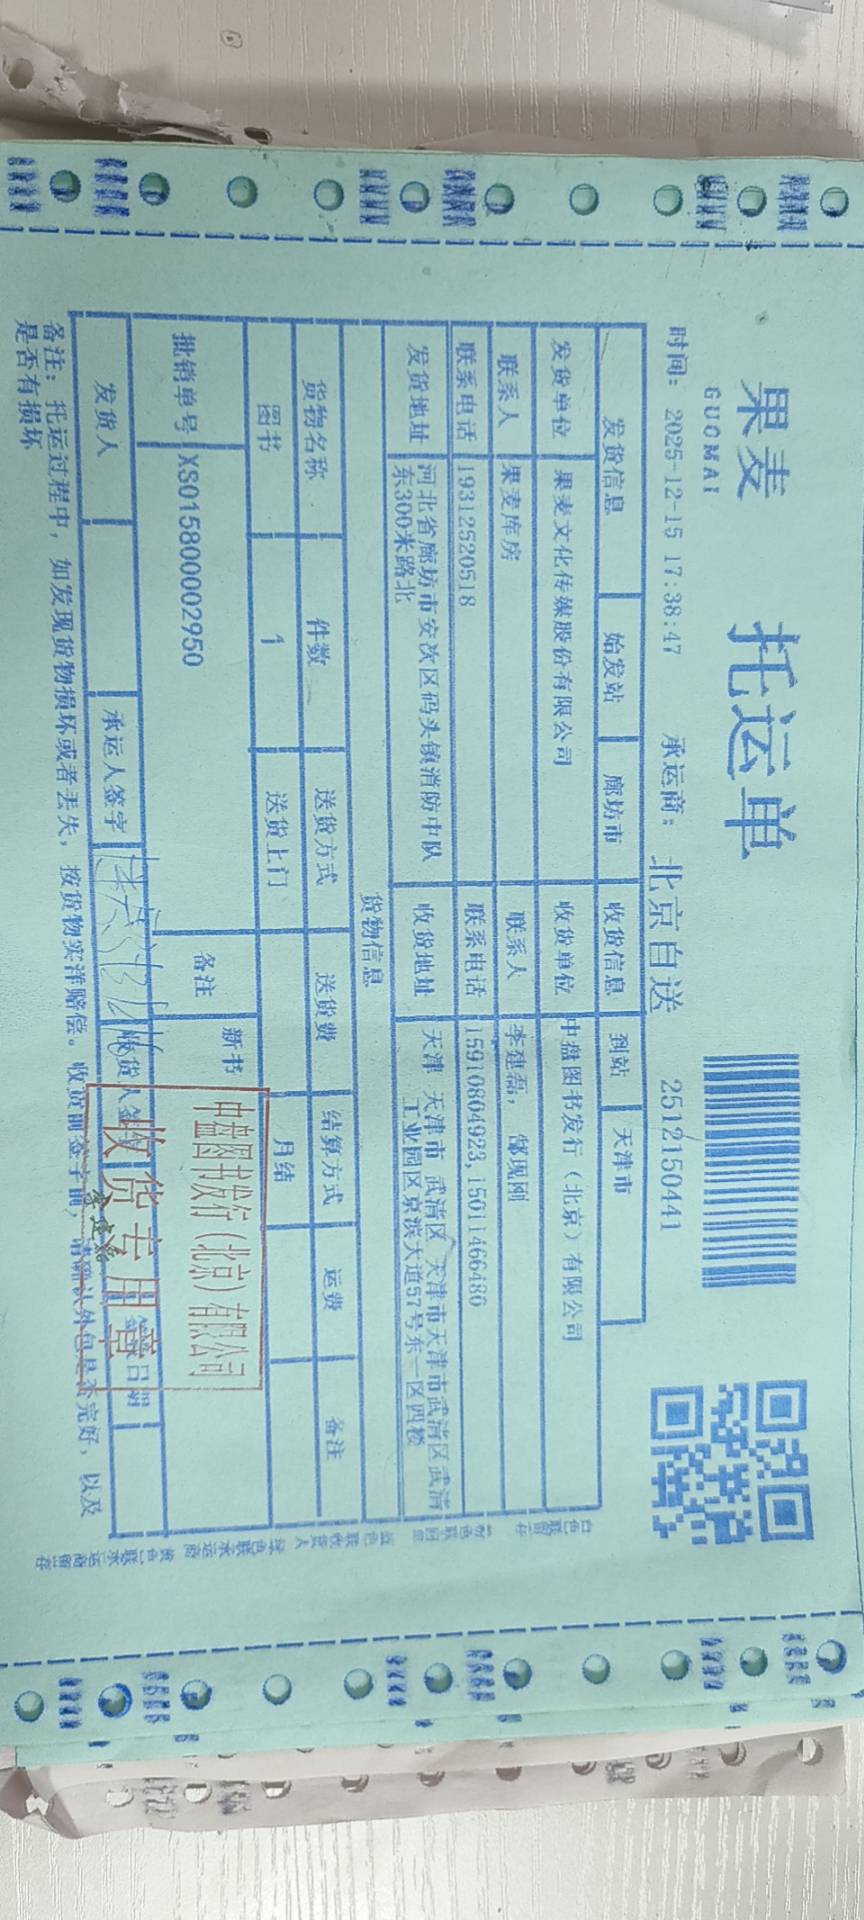 果麦
GUOMAI
托运单
时间: 2025-12-15 17:38:47 承运商: 北京自送 2512150441
发货信息 始发站 廊坊市 收货信息 到站 天津市
发货单位 果麦文化传媒股份有限公司 收货单位 中盘图书发行（北京）有限公司
联系人 果麦库房 联系人 李建磊, 郜现刚
联系电话 19312520518 联系电话 15910804923,15011466480
发货地址 河北省廊坊市安次区码头镇消防中队
东300米路北
收货地址 天津 天津市 武清区 天津市天津市武清区武清
工业园区京滨大道57号东一区四楼
货物信息
货物名称 件数 送货方式 送货费 结算方式 运费 备注
图书 1 送货上门 月结
批销单号 XS015800002950 备注 新书
发货人 承运人签字 收货人签 日期
中盘图书发行（北京）有限公司
收货专用章
备注: 托运过程中, 如发现货物损坏或者丢失, 按货物实洋赔偿。收货前签字前, 请确认外包是否完好, 以及
是否有损坏